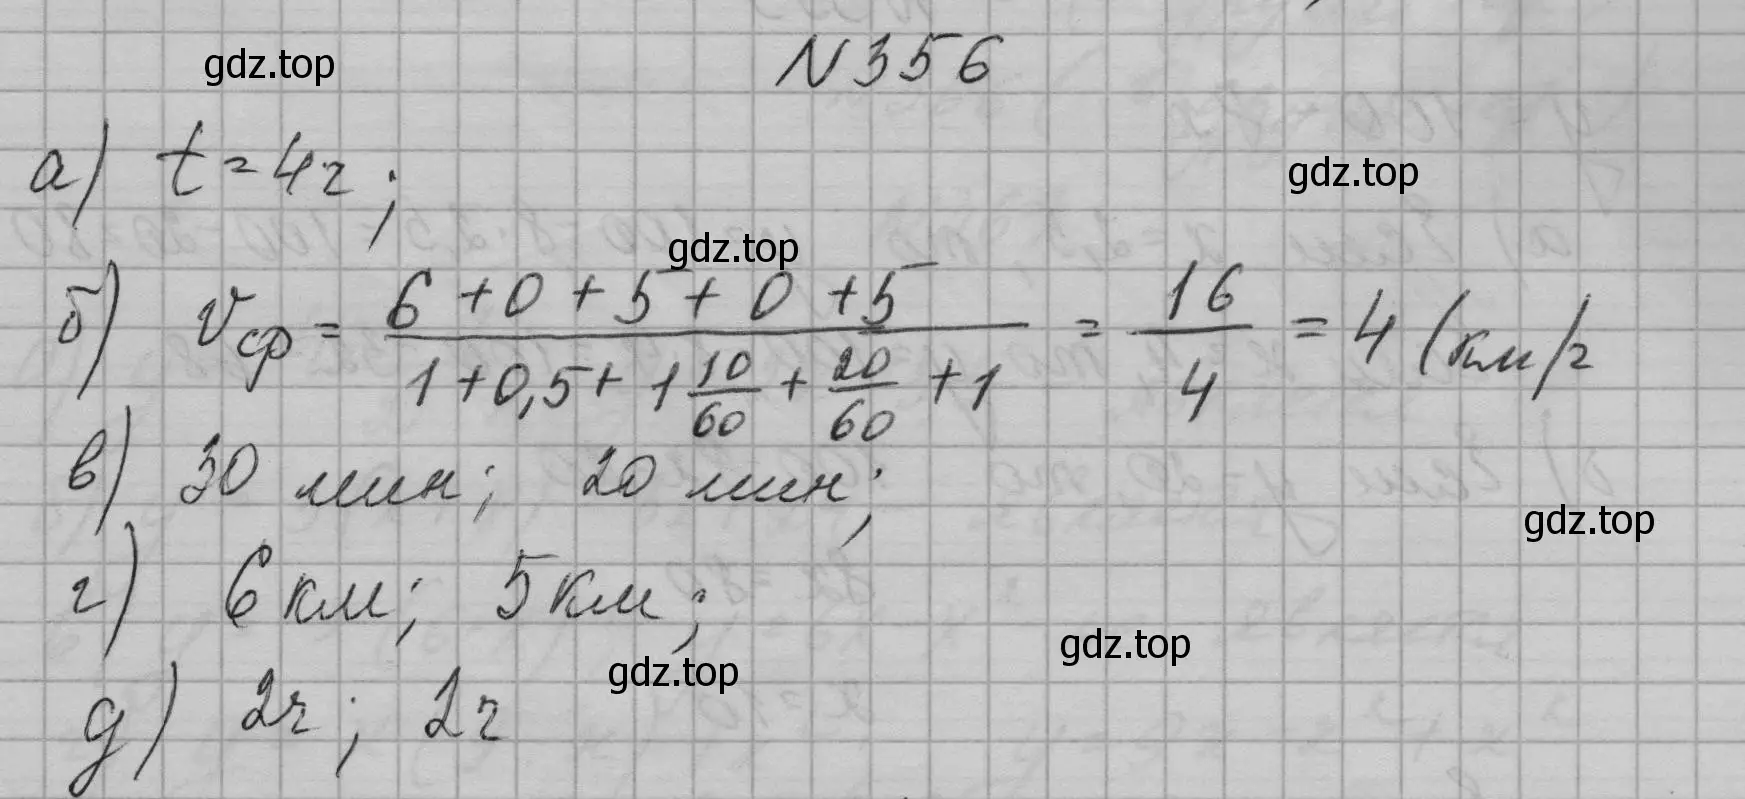 N 356
gdz.top
а) t = 4ч;
gdz.top
gdz.top
б) vср = (6 + 0 + 5 + 0 + 5)/(1 + 0,5 + 1 10/60 + 20/60 + 1) = 16/4 = 4 (км/ч
в) 30 мин; 20 мин;
gdz.top
г) 6 км; 5 км;
gdz.top
gdz.top
д) 2ч; 2ч